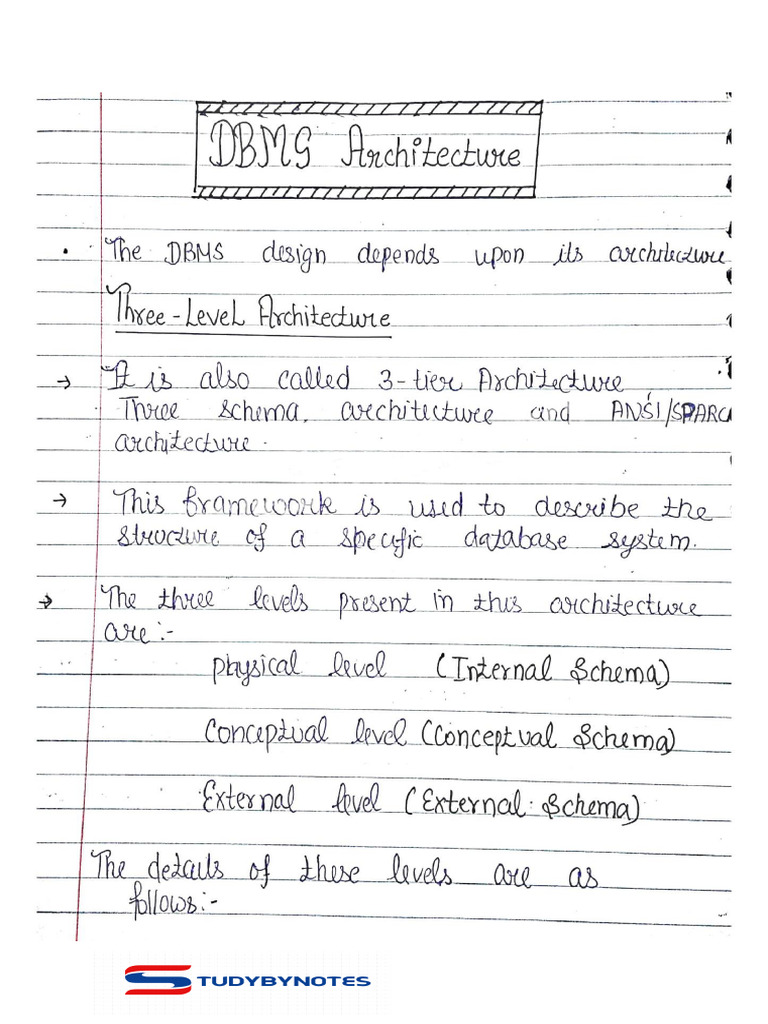 DBMS Architecture
• The DBMS design depends upon its architecture
Three-Level Architecture
→ It is also called 3-tier Architecture
Three schema, architecture and ANSI/SPARC
architecture.
→ This framework is used to describe the
structure of a specific database system.
→ The three levels present in this architecture
are:-
Physical level (Internal Schema)
Conceptual level (Conceptual Schema)
External level (External Schema)
The details of these levels are as
follows:-
STUDYBYNOTES